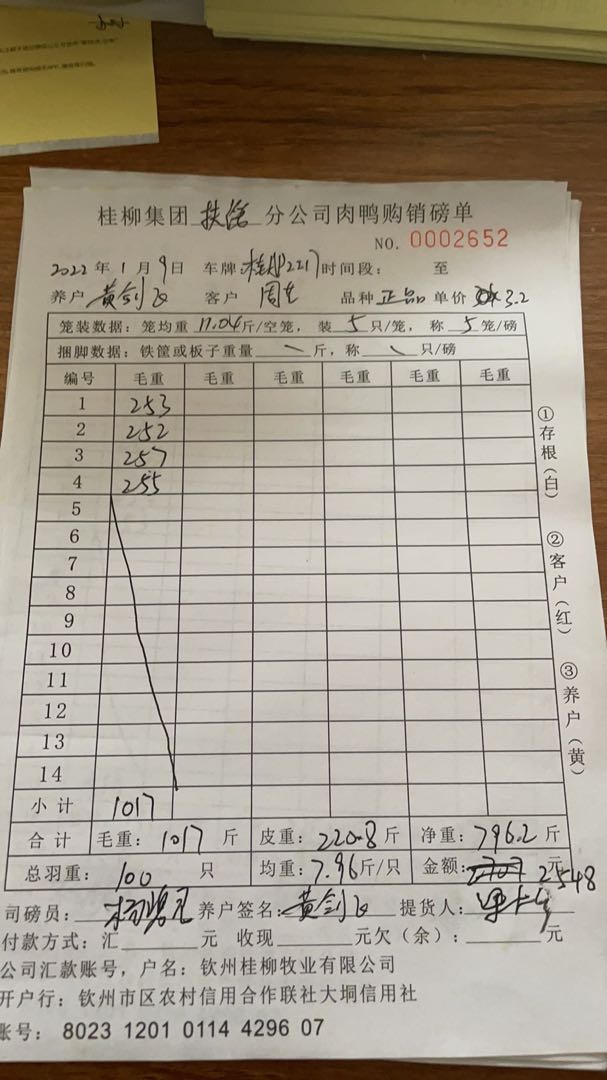 桂柳集团 扶绥 分公司肉鸭购销磅单
NO. 0002652
2022年1月9日 车牌:桂 2217 时间段: 至
养户 黄剑飞 客户 周 品种 正品 单价 3.2
笼装数据:笼均重 11.04 斤/空笼,装 5 只/笼,称 5 笼/磅
捆脚数据:铁筐或板子重量 斤,称 只/磅
编号 毛重 毛重 毛重 毛重 毛重 毛重
1 253
2 252
3 257
4 255
5
6
7
8
9
10
11
12
13
14
小计 1017
合计 毛重:1017斤 皮重:220.8斤 净重:796.2斤
总羽重:100 只 均重:7.96斤/只 金额: 2548元
司磅员:杨 养户签名:黄剑飞 提货人:
付款方式:汇 元 收现 元欠(余): 元
公司汇款账号,户名:钦州桂柳牧业有限公司
开户行:钦州市区农村信用合作联社大垌信用社
账号:8023 1201 0114 4296 07
①存根(白)
②客户(红)
③养户(黄)